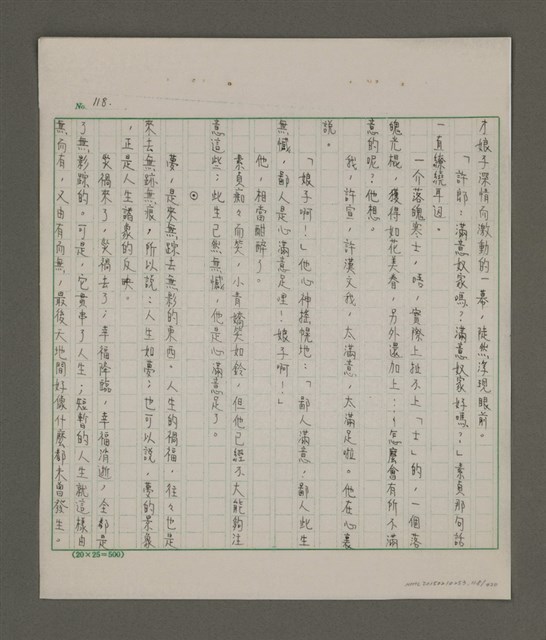 No. 118.
才娘子深情而激動的一幕，徒然浮現眼前。
「許郎：滿意奴家嗎？滿意奴家好嗎？」素貞那句話
一直繚繞耳迴。
一個落魄寒士，唔，實際上扯不上「士」的，一個落
魄光棍，獲得如花美眷，另外還加上……怎麼會有所不滿
意的呢？他想。
我，許宣，許漢文我，太滿意，太滿足啦。他在心裏
說。
「娘子啊！」他心神搖幌地：「鄙人滿意，鄙人此生
無憾，鄙人是心滿意足哩！娘子啊！」
他，相當酣醉了。
素貞痴痴而笑，小青嬌笑如鈴，但他已經不大能夠注
意這些；此生已然無憾，他是心滿意足了。
⊙
夢，是來無踪去無影的東西。人生的禍福，往往也是
來去無跡無痕，所以說：人生如夢；也可以說，夢的景象
，正是人生諸象的反映。
災禍來了，災禍去了；幸福降臨，幸福消逝，全都是
了無影踪的。可是，它貫串了人生；短暫的人生就這樣由
無而有，又由有而無，最後天地間好像什麼都未曾發生。
(20×25=500)